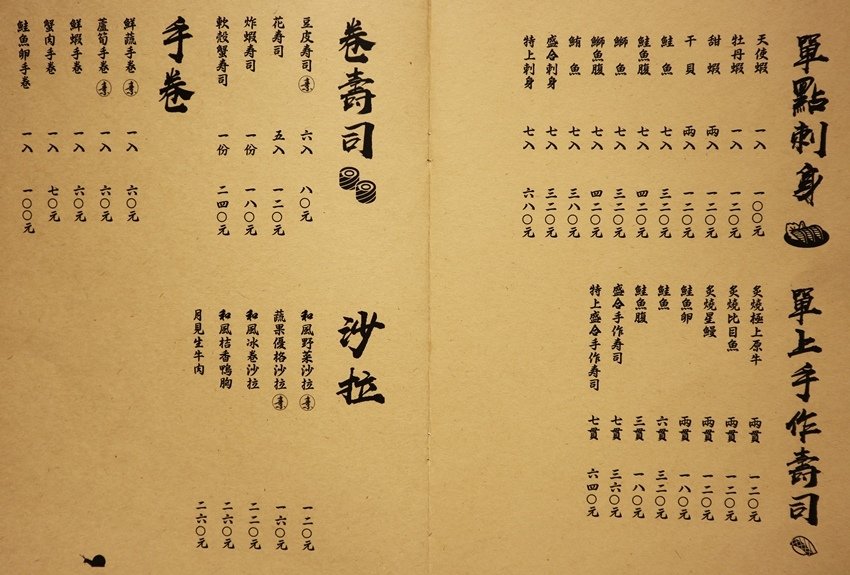 單點刺身
天使蝦 一入 一〇〇元
牡丹蝦 一入 一二〇元
甜蝦 兩入 一二〇元
干貝 兩入 一二〇元
鮭魚 七入 三二〇元
鮭魚腹 七入 四二〇元
鰤魚 七入 三二〇元
鰤魚腹 七入 四二〇元
鮪魚 七入 三八〇元
盛合刺身 七入 三二〇元
特上刺身 七入 六八〇元
單上手作壽司
炙燒極上原牛 兩貫 一二〇元
炙燒比目魚 兩貫 一二〇元
炙燒星鰻 兩貫 一二〇元
鮭魚卵 兩貫 一八〇元
鮭魚 六貫 三二〇元
鮭魚腹 三貫 一八〇元
盛合手作寿司 七貫 三六〇元
特上盛合手作寿司 七貫 六四〇元
卷壽司
豆皮寿司 素 六入 八〇元
花寿司 五入 一二〇元
炸蝦寿司 一份 一八〇元
軟殼蟹寿司 一份 二四〇元
手卷
鮮蔬手卷 素 一入 六〇元
蘆筍手卷 素 一入 六〇元
鮮蝦手卷 一入 六〇元
蟹肉手卷 一入 七〇元
鮭魚卵手卷 一入 一〇〇元
沙拉
和風野菜沙拉 素 一二〇元
蔬果優格沙拉 素 一六〇元
和風冰卷沙拉 二二〇元
和風桔香鴨胸 二六〇元
月見生牛肉 二六〇元